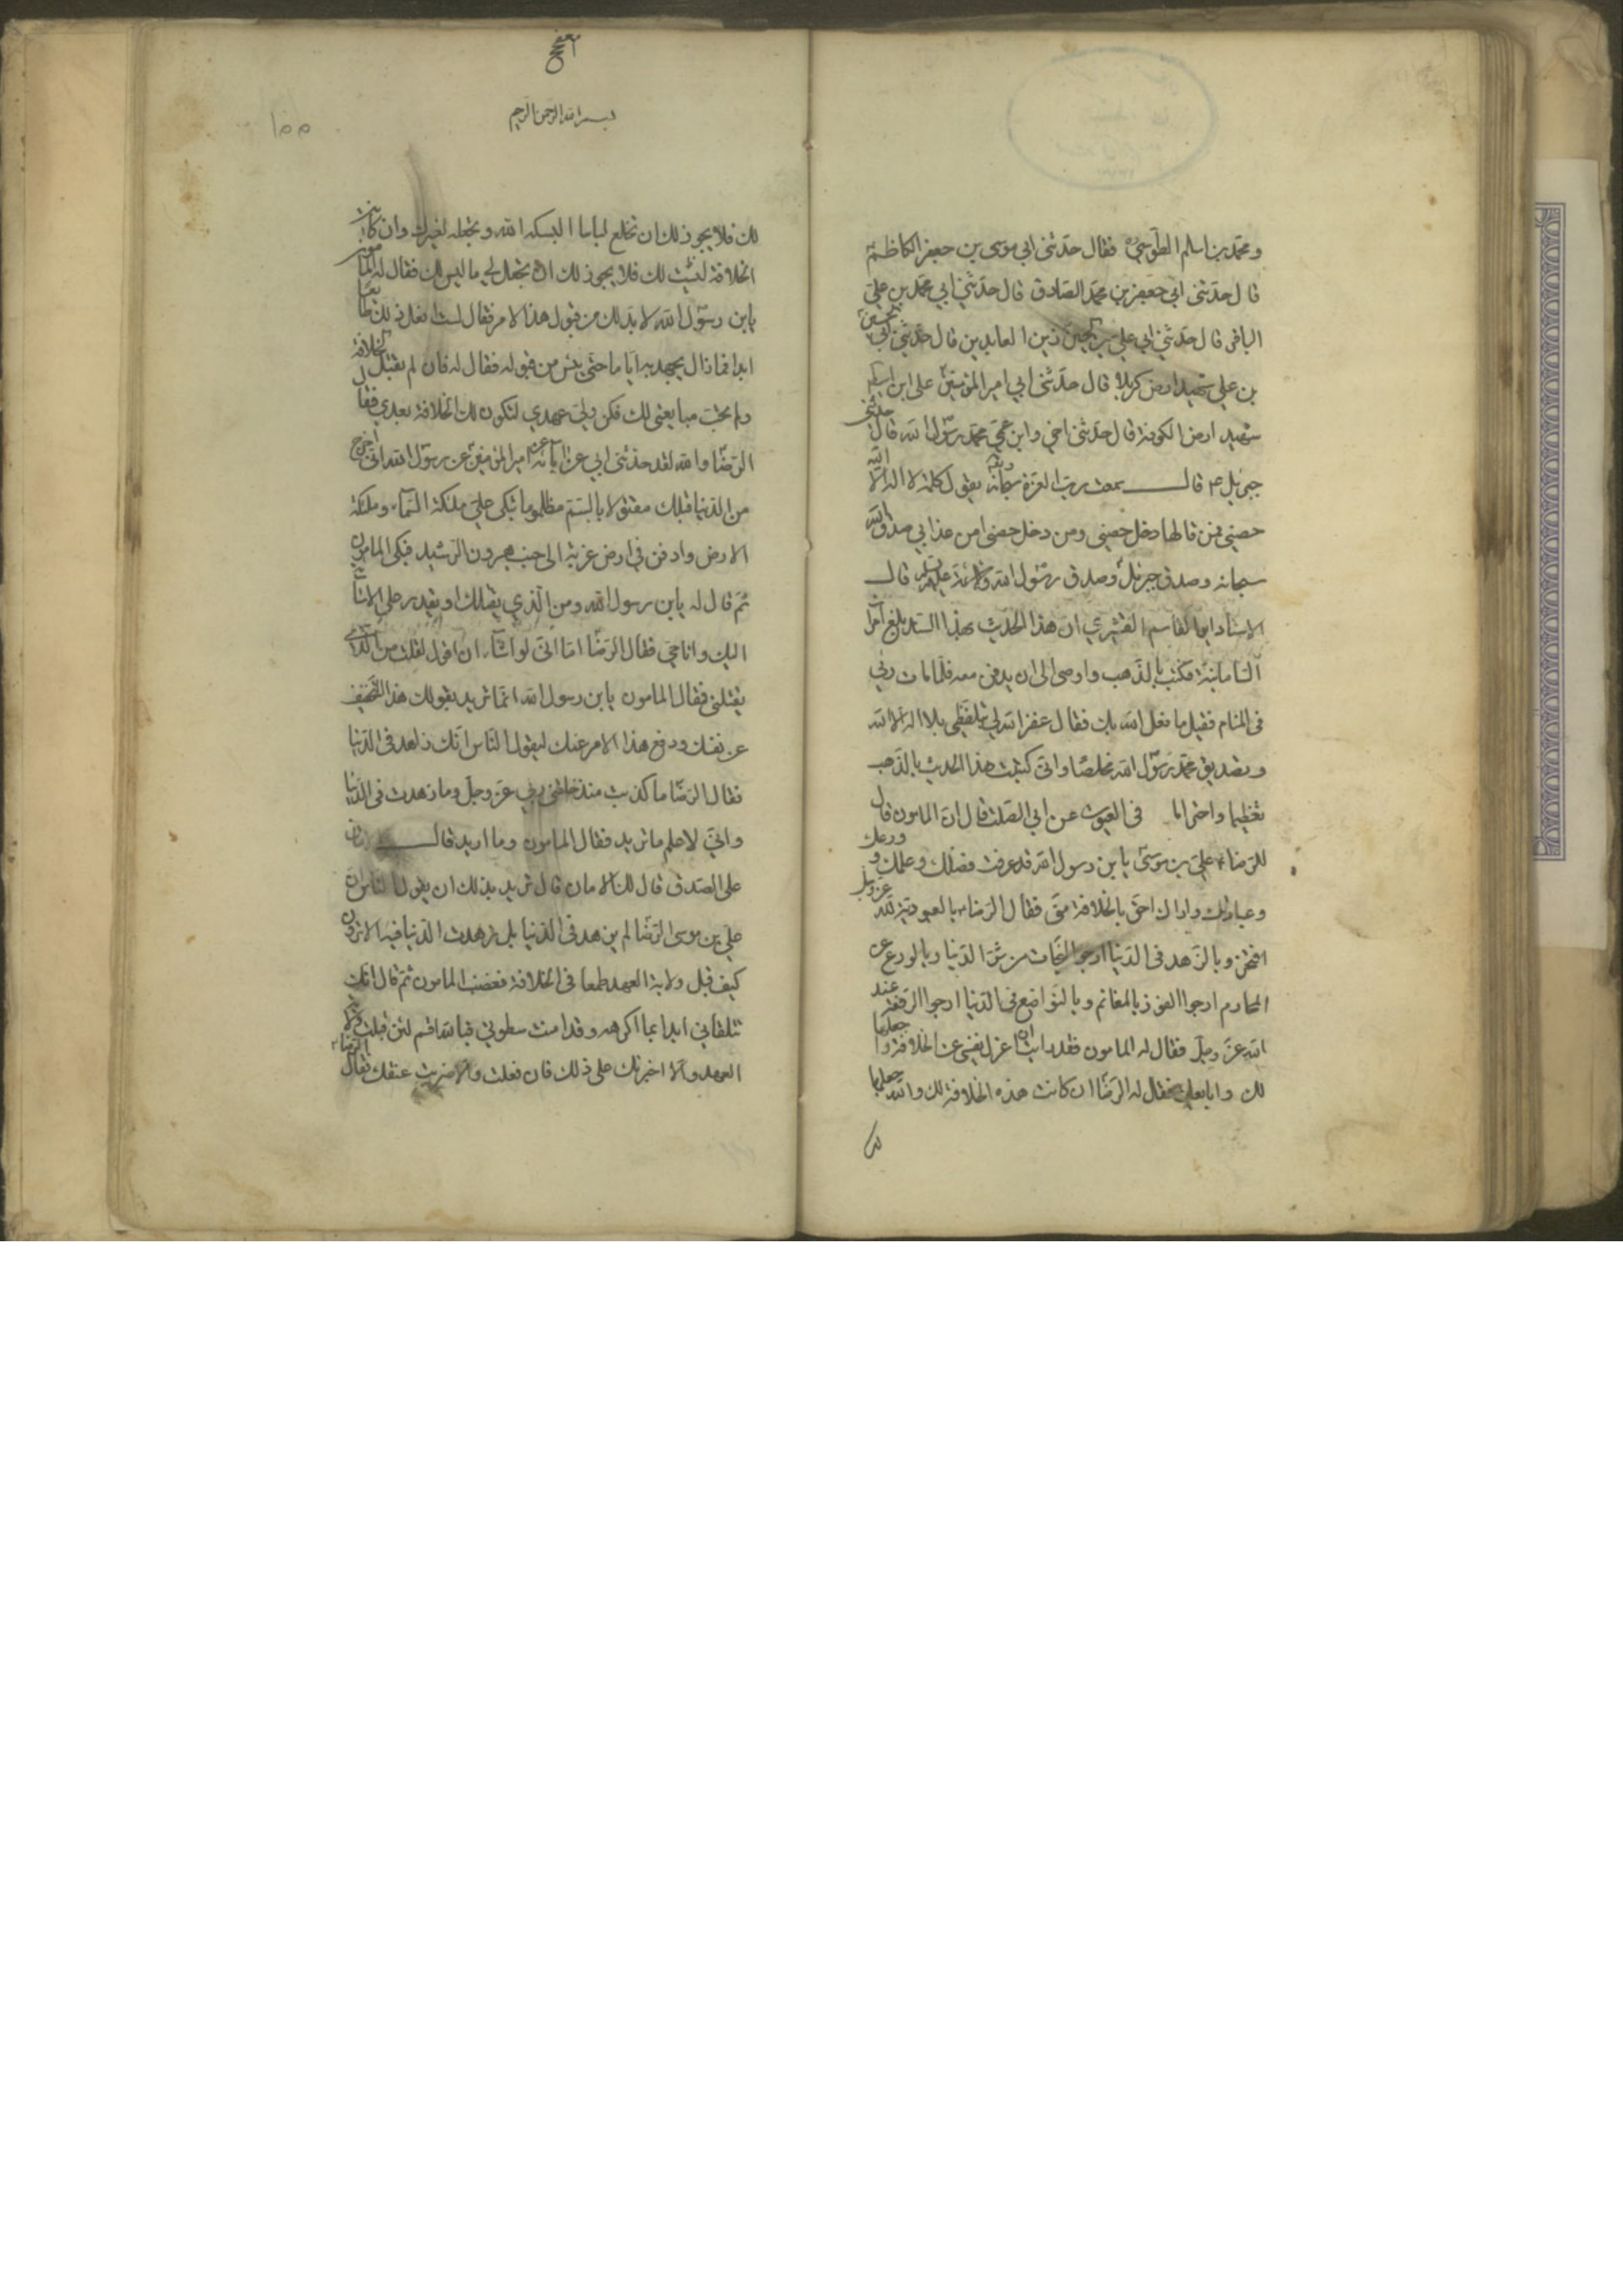 ومحمد بن اسلم الطوسي فقال حدثنى ابي موسى بن جعفر الكاظم
قال حدثنى ابي جعفر بن محمد الصادق قال حدثنى ابي محمد بن علي
الباقر قال حدثنى ابي علي بن الحسين زين العابدين قال حدثنى ابي الحسين
بن علي شهيد ارض كربلا قال حدثنى ابي امير المؤمنين على ابن ابيطالب
شهيد ارض الكوفة قال حدثنى اخي وابن عمي محمد رسول الله قال حدثنى
جبرئيل قال سمعت رب العزة سبحانه يقول كلمة لا اله الا الله
حصني فمن قالها دخل حصني ومن دخل حصني امن عذابي صدق الله
سبحانه وصدق جبرئيل وصدق رسول الله قال
الاستاد ابو القاسم القشيري ان هذا الحديث بهذا السند بلغ امرآ
السامانية فكتب بالذهب واوصى الى ان يدفن معه فلما مات رئي
فى المنام فقيل ما فعل الله بك فقال غفر الله لي بتلفظي بلا اله الا الله
وتصديق محمد رسول الله مخلصا وانى كتبت هذا الحديث بالذهب
تعظيما واحتراما فى العيون عن ابي الصلت قال ان المامون قال
للرضا علي بن موسى يا بن رسول الله قد عرفت فضلك وعلمك وورعك
وعبادتك واراك احق بالخلافة منى فقال الرضا بالعبودية لله عز وجل
افتخر وبالزهد فى الدنيا ارجوا النجاة من شر الدنيا وبالورع عن
المحارم ارجوا الفوز بالمغانم وبالتواضع فى الدنيا ارجوا الرفعة عند
الله عز وجل فقال له المامون فقد رايت ان اعزل نفسي عن الخلافة واجعلها
لك وابايعك فقال له الرضا ان كانت هذه الخلافة لك والله جعلها
لك
بسم الله الرحمن الرحيم
١٥٥
لك فلا يجوز لك ان تخلع لباسا البسكه الله وتجعله لغيرك وان كانت
الخلافة ليست لك فلا يجوز لك ان تجعل لي ما ليس لك فقال له المامون
يابن رسول الله لا بد لك من قبول هذا الامر فقال لست افعل ذلك طايعا
ابدا فما زال يجهد به اياما حتى يئس من قبوله فقال له فان لم تقبل الخلافة
ولم تحب مبايعتى لك فكن ولي عهدي لتكون لك الخلافة بعدي فقال
الرضا والله لقد حدثنى ابي عن آبائه عن امير المؤمنين عن رسول الله انى اخرج
من الدنيا قبلك مقتولا بالسم مظلوما تبكى علي ملئكة السمآء وملئكة
الارض وادفن في ارض غربة الى جنب هرون الرشيد فبكى المامون
ثم قال له يابن رسول الله ومن الذي يقتلك او يقدر على الاساءة
اليك وانا حي فقال الرضا اما انى لو اشآء ان اقول لقلت من الذي
يقتلنى فقال المامون يابن رسول الله انما تريد بقولك هذا التخفيف
عن نفسك ودفع هذا الامر عنك ليقول الناس انك زاهد فى الدنيا
فقال الرضا ما كذبت منذ خلقنى ربي عز وجل وما زهدت فى الدنيا
وانى لاعلم ما تريد فقال المامون وما اريد قال الامان
على الصدق قال لك الامان قال تريد بذلك ان يقول الناس ان
علي بن موسى الرضا لم يزهد فى الدنيا بل زهدت الدنيا فيه الا ترون
كيف قبل ولاية العهد طمعا فى الخلافة فغضب المامون ثم قال انك
تتلقاني ابدا بما اكرهه وقد امنت سطوتي فبالله اقسم لئن قبلت ولاية
العهد والا اجبرتك على ذلك فان فعلت والا ضربت عنقك فقال الرضا